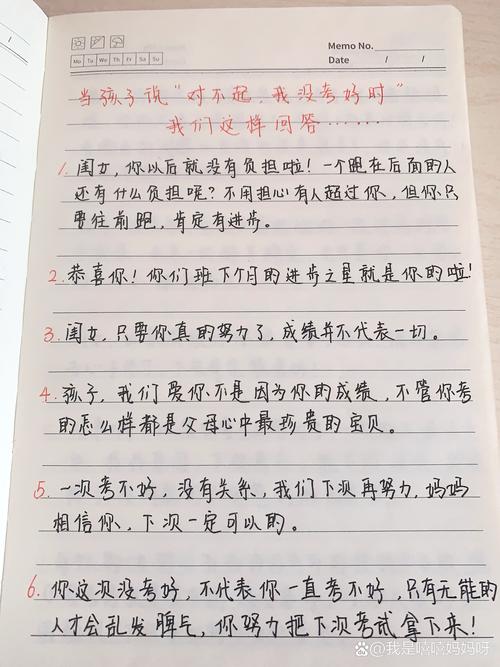 Memo No.
Mo Tu We Th Fr Sa Su
Date / /
当孩子说“对不起,我没考好时”
我们这样回答······
1. 闺女,你以后就没有负担啦!一个跑在后面的人
还有什么负担呢?不用担心有人超过你,但你只
要往前跑,肯定有进步。
2. 恭喜你!你们班下个月的进步之星就是你的啦!
3. 闺女,只要你真的努力了,成绩并不代表一切。
4. 孩子,我们爱你不是因为你的成绩,不管你考
的怎么样都是父母心中最珍贵的宝贝。
5. 一次考不好,没有关系,我们下次再努力,妈妈
相信你,下次一定可以的。
6. 你这次没考好,不代表你一直考不好,只有无能的
人才会乱发脾气,你努力把下次考试拿下来!
@我是嘻嘻妈妈呀